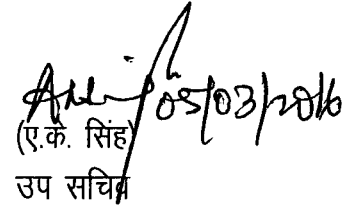 05/03/2016
(ए.के. सिंह)
उप सचिव